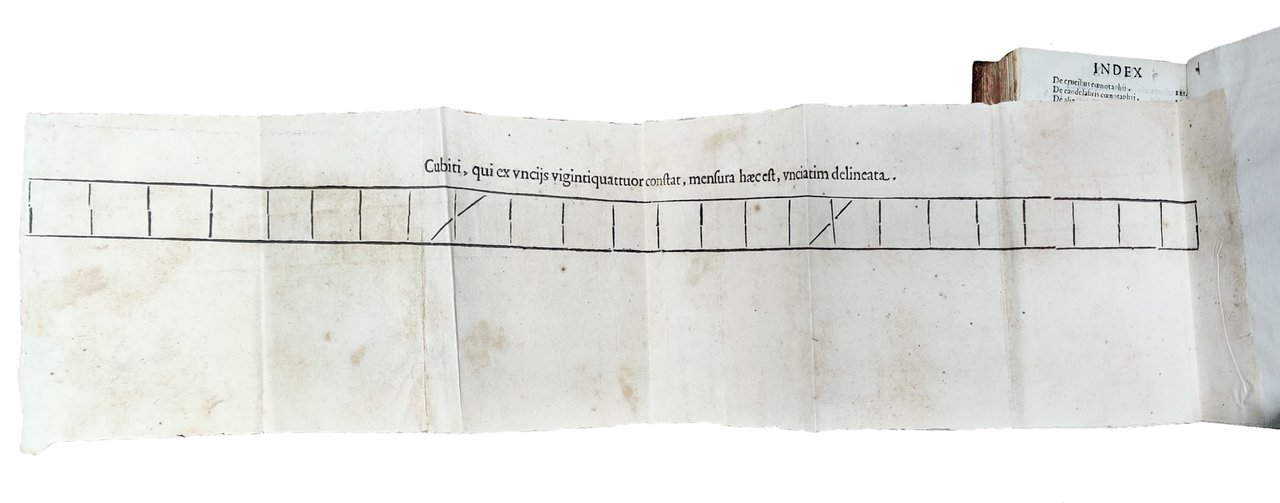 INDEX
De crucibus cœnotaphii.
De candelabris cœnotaphii.
Cubiti, qui ex vncijs vigintiquattuor conſtat, menſura hæc eſt, vnciatim delineata.